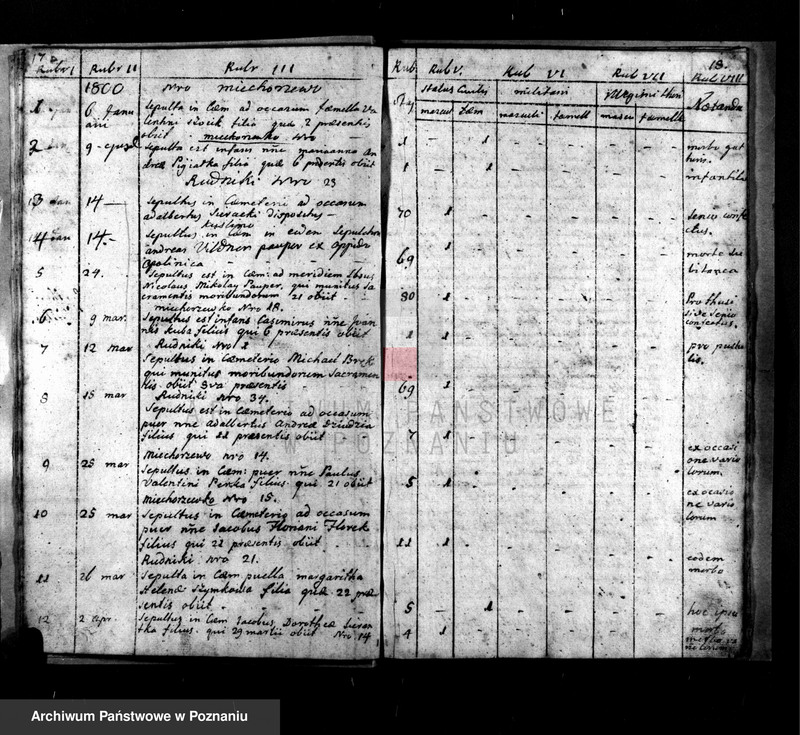 17
Rubr I Rubr II Rubr III
1800 Nro Miechorzewo
1 6 Janu Sepulta in Cæm ad occasum fæmella Va
arii lentini filia quæ 2 præsentis
obiit miechorzewko Nro
2 9 ejusd Sepulta est infans nñe marianna An
dreæ Pigiatka filia quæ 6 præsentis obiit
Rudniki Nro 23
3 14 Sepultus in Cæmeterii ad occasum
adalbertus Sieracki dispositus
4 14 Sepultus in Cæm in eiden sepulchro
andreas pauper ex oppido
Opalinica
5 24. Sepultus est in Cæm: ad meridiem
Nicolaus Mikolay Pauper, qui munitus sa
cramentis moribundorum 21 obiit
miechorzewko Nro 18.
6 9 mar. Sepultus est infans Casimirus nñe Joan
nis Kuba filius qui 6 præsentis obiit
Rudniki Nro 2
7 12 mar Sepultus in Cæmeterio Michael Brek
qui munitus moribundorum Sacramen
tis obiit 3va præsentis
Rudniki Nro 34.
8 15 mar Sepultus est in Cæmeterio ad occasum
puer nñe adalbertus Andreæ Dziudzia
filius qui 11 præsentis obiit
Miechorzewo nro 14.
9 25 mar Sepultus in Cæm: puer nñe Paulus
Valentini Perka filius qui 21 obiit
Miechorzewko Nro 15.
10 25 mar Sepultus in Cæmeterio ad occasum
puer nñe Jacobus Floriani Florek
filius qui 22 præsentis obiit
Rudniki Nro 21.
11 26 mar Sepulta in Cæm puella margaritha
Helenæ Szymkowa filia quæ 22 præ
sentis obiit
12 2 apr. Sepultus in Cæm Jacobus, Dorotheæ Sieran
tka filius qui 29 martii obiit Nro 14
18.
Rub Rub V. Rub VI Rub VII Rub VIII
Status Civilis militaris Religionis
mascul fæm masculi famell mascu famelle Notanda
1 - 1 - - - - morbo gut
turis.
1 - 1 - - - - infantili
70 1 - - - - - senio conf
ectus.
69 1 - - - - - morte su
bitanea
30 1 - - - - - Pro thusi
confectus.
1 1 - - - - -
69 1 - - - - -
7 1 - - - - - ex occasi
one vario
lorum.
5 1 - - - - - ex ocasio
ne vario
lorum
11 1 - - - - - eodem
morbo
5 - 1 - - - - hoc ipso
4 1 - - - - - morbo
ARCHIWUM PAŃSTWOWE
W POZNANIU
Archiwum Państwowe w Poznaniu